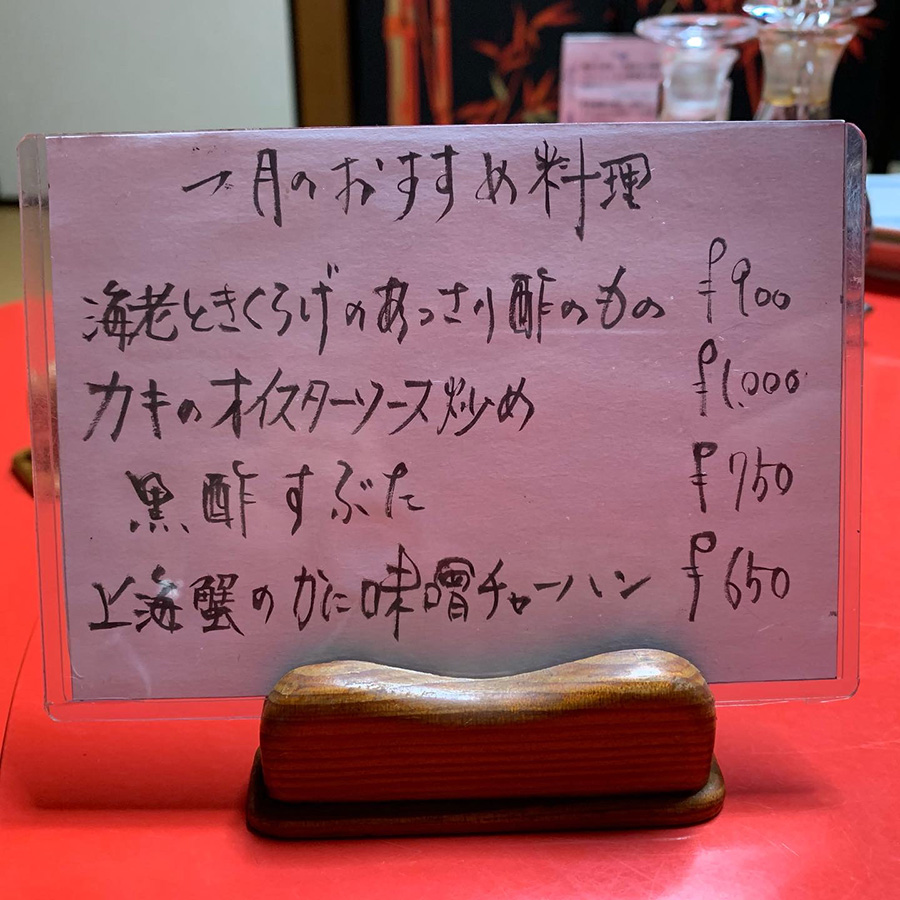 一月のおすすめ料理
海老ときくらげのあっさり酢のもの ¥900
カキのオイスターソース炒め ¥1.000
黒酢すぶた ¥750
上海蟹のかに味噌チャーハン ¥650